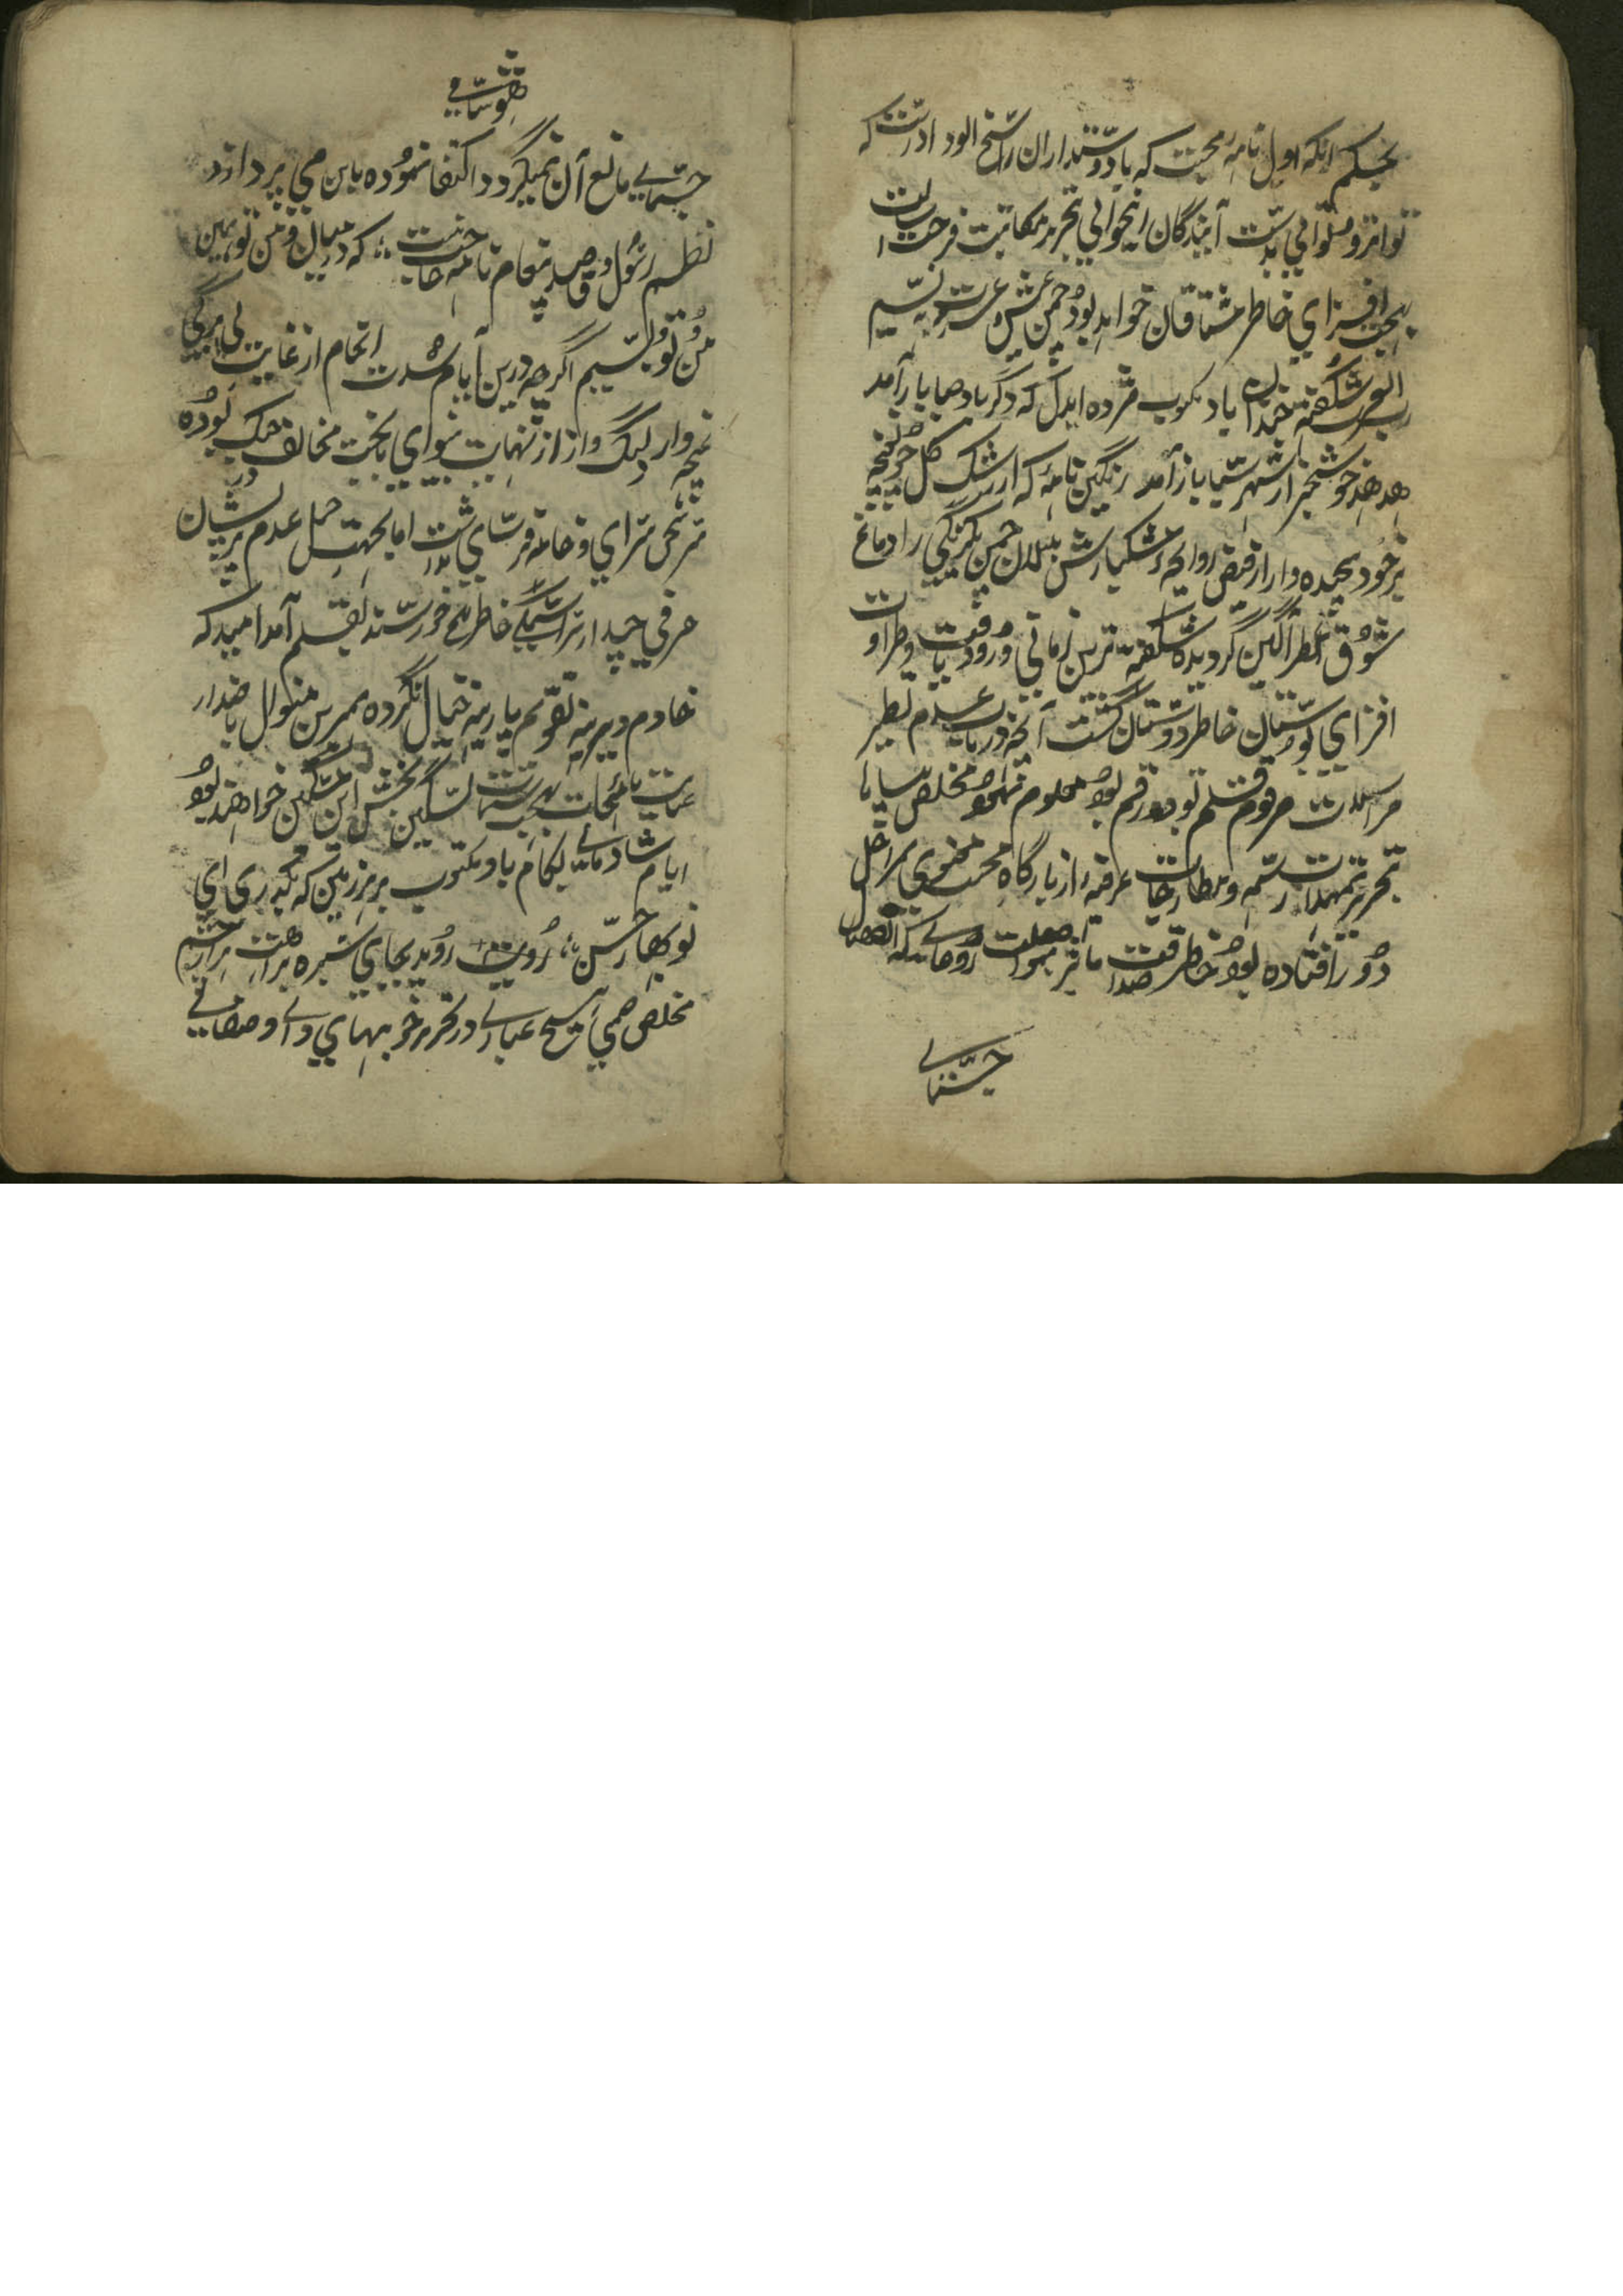 بحکم انکه اول نامه محبت که با دوستداران راسخ الوداد است که
تواتر و متوالی بدست آیندگان اینحوالی تحریر مکاتبت فرحت
بهجت افزای خاطر مشتاقان خواهد بود چمن عیش و عشرت به نسیم
شکفته و خندان باد مکتوب مژده ایدل که دگر باد صبا باز آمد
هدهد خوشخبر از شهر سبا باز آمد رنگین نامه که از رشک گل چون غنچه
بر خود پیچیده و از فیض روایحه مشکبارش بلبلان چمن یکرنگی را دماغ
شوق عطر آگین گردیده شکفته ترین زمانی ورود یافت و طراوت
افزای بوستان خاطر دوستان گشت آنچه در باب عدم تسطیر
مراسلات مرقوم قلم تودد رقم بود معلوم نمود مخلص سیاه با
تحریر تمهیدات رسمیه و مطارحات عرفیه از بارگاه محبت معنوی بمراحل
دور افتاده بود خاطر صداقت مآثر بمواصلت روحانی که انفصال
جسمانی
جسمانی مانع آن نمیگردد اکتفا نموده باین می پردازد
نظم رسول و قاصد و پیغام و نامه حاجت نیست که در میان من و تو همین
من و تو بسیم اگر چه درین ایام شدت انجام از غایت بی برگی
غنچه وار دلتنگ و از نهایت بینوای با بخت مخالف در جنگ بوده
سر سخن سرای و خامه فرسای نداشت اما بجهت حمل عدم پریشان
حرفی چند از تراشیدگی خاطر ناخرسند بقلم آمد امید که
خادم دیرینه را تقویم پارینه خیال نکرده بهمین منوال با صدار
عنایت نامجات بهجت سمات تسکین بخش این مسکین خواهند بود
ایام شادمانی بکام باد مکتوب بر هر زمین که بگذری ای
نوبهار حسن روید بجای سبزه
مخلص صمیمی شیخ عبا در تحریر خوبیهای و اوصافی